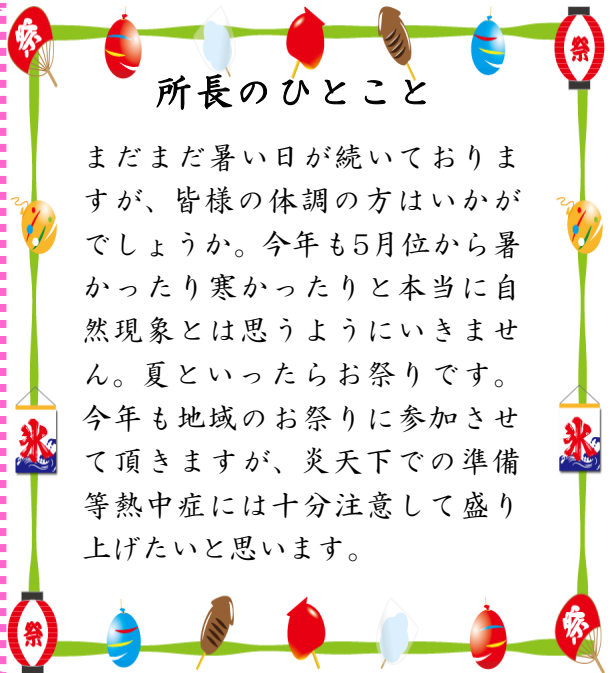 祭
祭
所長のひとこと
まだまだ暑い日が続いておりま
すが、皆様の体調の方はいかが
でしょうか。今年も5月位から暑
かったり寒かったりと本当に自
然現象とは思うようにいきませ
ん。夏といったらお祭りです。
今年も地域のお祭りに参加させ
て頂きますが、炎天下での準備
等熱中症には十分注意して盛り
上げたいと思います。
氷
氷
祭
祭